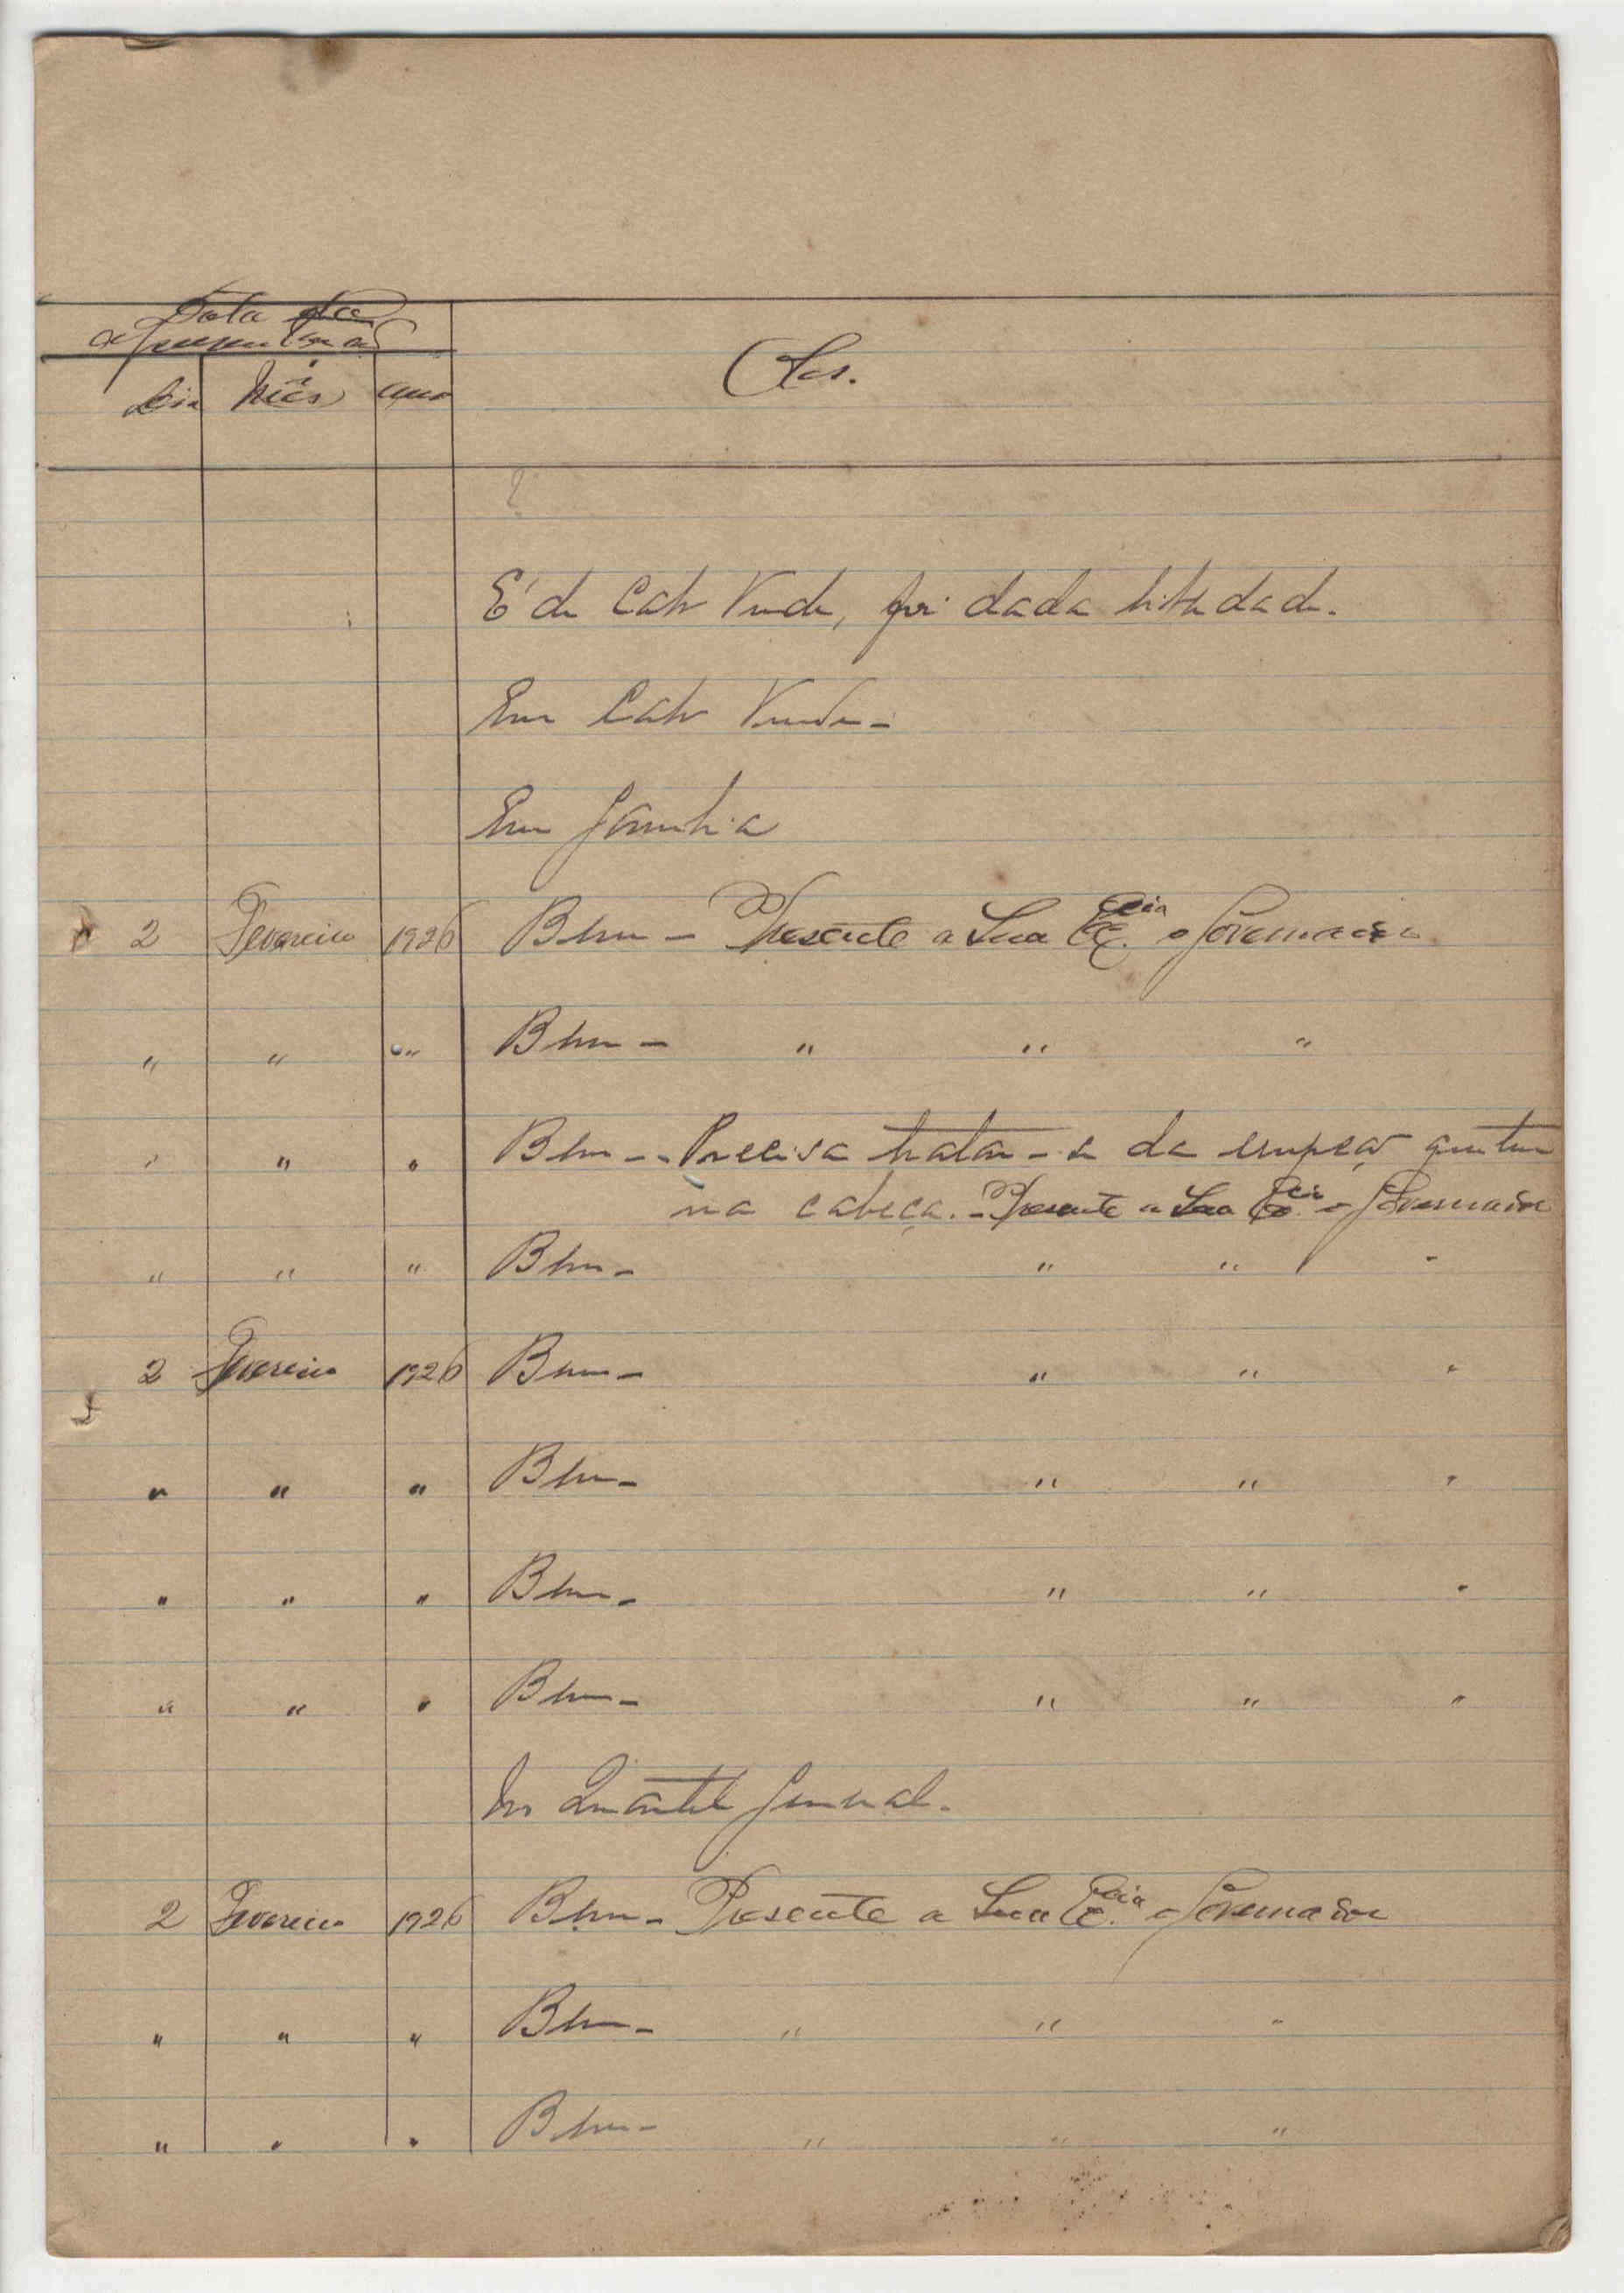 Data da
apresentação
Dia Mês Ano Obs.
?
É de Cabo Verde, foi dada liberdade.
Em Cabo Verde -
Em Gambia
2 Fevereiro 1926 Bem - Presente a Sua Ex.cia o Governador
" " " Bem - " " "
" " " Bem - Precisa tratar-se da erupção que tem
na cabeça. - Presente a Sua Ex.cia o Governador
" " " Bem - " " "
2 Fevereiro 1926 Bem - " " "
" " " Bem - " " "
" " " Bem - " " "
" " " Bem - " " "
No Quartel General.
2 Fevereiro 1926 Bem - Presente a Sua Ex.cia o Governador
" " " Bem - " " "
" " " Bem - " " "